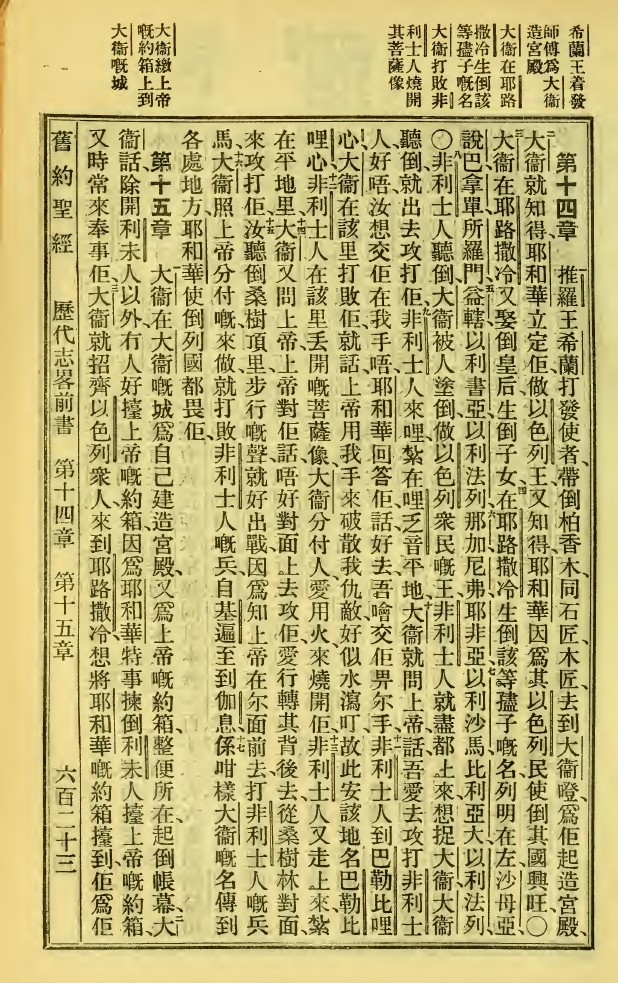 希蘭王着發
師傅爲大衞
造宮殿
大衞在耶路
撒冷生倒該
等孻子嘅名
大衞打敗非
利士人燒開
其菩薩像
大衞繳上帝
嘅約箱上到
大衞嘅城
第十四章 一推羅王希蘭打發使者、帶倒柏香木、同石匠、木匠、去到大衞嶝、爲佢起造宮殿、
二大衞就知得耶和華立定佢做以色列王、又知得耶和華因爲其以色列民、使倒其國興旺、〇
三大衞在耶路撒冷又娶倒皇后、生倒子女、四在耶路撒冷生倒該等孻子嘅名、列明在左、沙母亞、
說巴、拿單、所羅門、五益轄、以利書亞、以利法列、六那加、尼弗、耶非亞、七以利沙馬、比利亞大、以利法列、
〇八非利士人聽倒大衞被人塗倒、做以色列衆民嘅王、非利士人就盡都上來、想捉大衞、大衞
聽倒、就出去攻打佢、九非利士人來哩、紮在哩乏音平地、十大衞就問上帝、話、吾愛去攻打非利士
人好唔、汝想交佢在我手唔、耶和華回答佢、話、好去、吾噲交佢畀尔手、十一非利士人到巴勒比哩
心、大衞在該里打敗佢、就話、上帝用我手來破散我仇敵、好似水瀉叮、故此安該地名巴勒比
哩心、十二非利士人在該里丢開嘅菩薩像、大衞分付人愛用火來燒開佢、十三非利士人又走上來、紮
在平地里、十四大衞又問上帝、上帝對佢話、唔好對面上去攻佢、愛行轉其背後去、從桑樹林對面、
來攻打佢、十五汝聽倒桑樹頂里步行嘅聲、就好出戰、因爲知上帝在尔面前去、打非利士人嘅兵
馬、十六大衞照上帝分付嘅來做、就打敗非利士人嘅兵、自基遍至到伽息、十七係咁樣大衞嘅名、傳到
各處地方、耶和華使倒列國都畏佢、
第十五章 一大衞在大衞嘅城、爲自己建造宮殿、又爲上帝嘅約箱、整便所在、起倒帳幕、二大
衞話、除開利未人以外、冇人好擡上帝嘅約箱、因爲耶和華特事揀倒利未人、擡上帝嘅約箱、
又時常來奉事佢、三大衞就招齊以色列衆人、來到耶路撒冷、想將耶和華嘅約箱、擡到佢爲佢
舊約聖經 歷代志畧前書 第十四章 第十五章 六百二十三